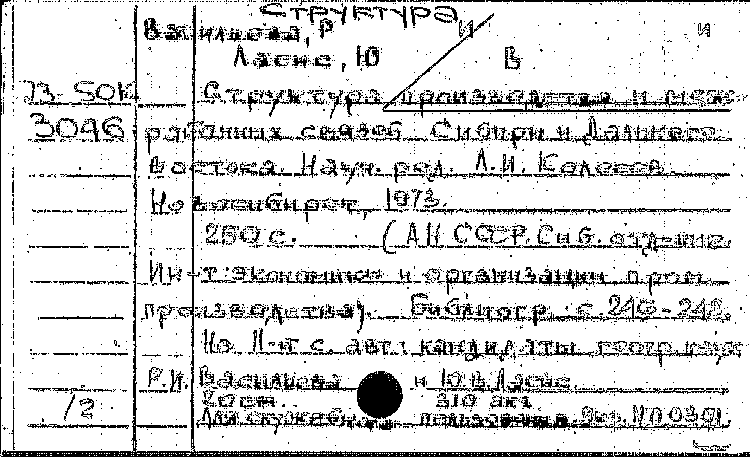 Структура
Васильева, Р И
И
Ласис, Ю В
73-50К Структура производства и меж-
3046 районных связей Сибири и Дальнего
Востока. Науч. ред. Л.И. Колесов.
Новосибирск, 1973.
250 с. (АН СССР. Сиб. отд-ние.
Ин-т экономики и организации пром.
производства). Библиогр. с. 246-248.
На II-й с. авт.: кандидаты геогр. наук
Р.И. Васильева и Ю.В. Ласис
12 20ст. 310 экз
Для служебного пользования. Экз. №